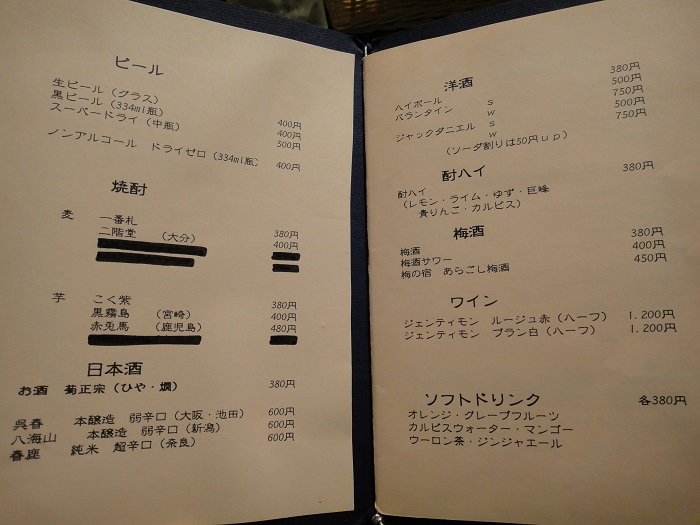 ビール
生ビール（グラス） 400円
黒ビール（334ml瓶） 400円
スーパードライ（中瓶） 500円
ノンアルコール ドライゼロ（334ml瓶） 400円
焼酎
麦 一番札 380円
二階堂 （大分） 400円
芋 こく紫 380円
黒霧島 （宮崎） 400円
赤兎馬 （鹿児島） 480円
日本酒
お酒 菊正宗（ひや・燗） 380円
呉春 本醸造 弱辛口（大阪・池田） 600円
八海山 本醸造 弱辛口（新潟） 600円
春鹿 純米 超辛口（奈良） 600円
洋酒
ハイボール 380円
バランタイン s 500円
w 750円
ジャックダニエル s 500円
w 750円
（ソーダ割りは50円ｕｐ）
酎ハイ
酎ハイ 380円
（レモン・ライム・ゆず・巨峰
青りんご・カルピス）
梅酒
梅酒 380円
梅酒サワー 400円
梅の宿 あらごし梅酒 450円
ワイン
ジェンティモン ルージュ赤（ハーフ） 1.200円
ジェンティモン ブラン白（ハーフ） 1.200円
ソフトドリンク 各380円
オレンジ・グレープフルーツ
カルピスウォーター・マンゴー
ウーロン茶・ジンジャエール